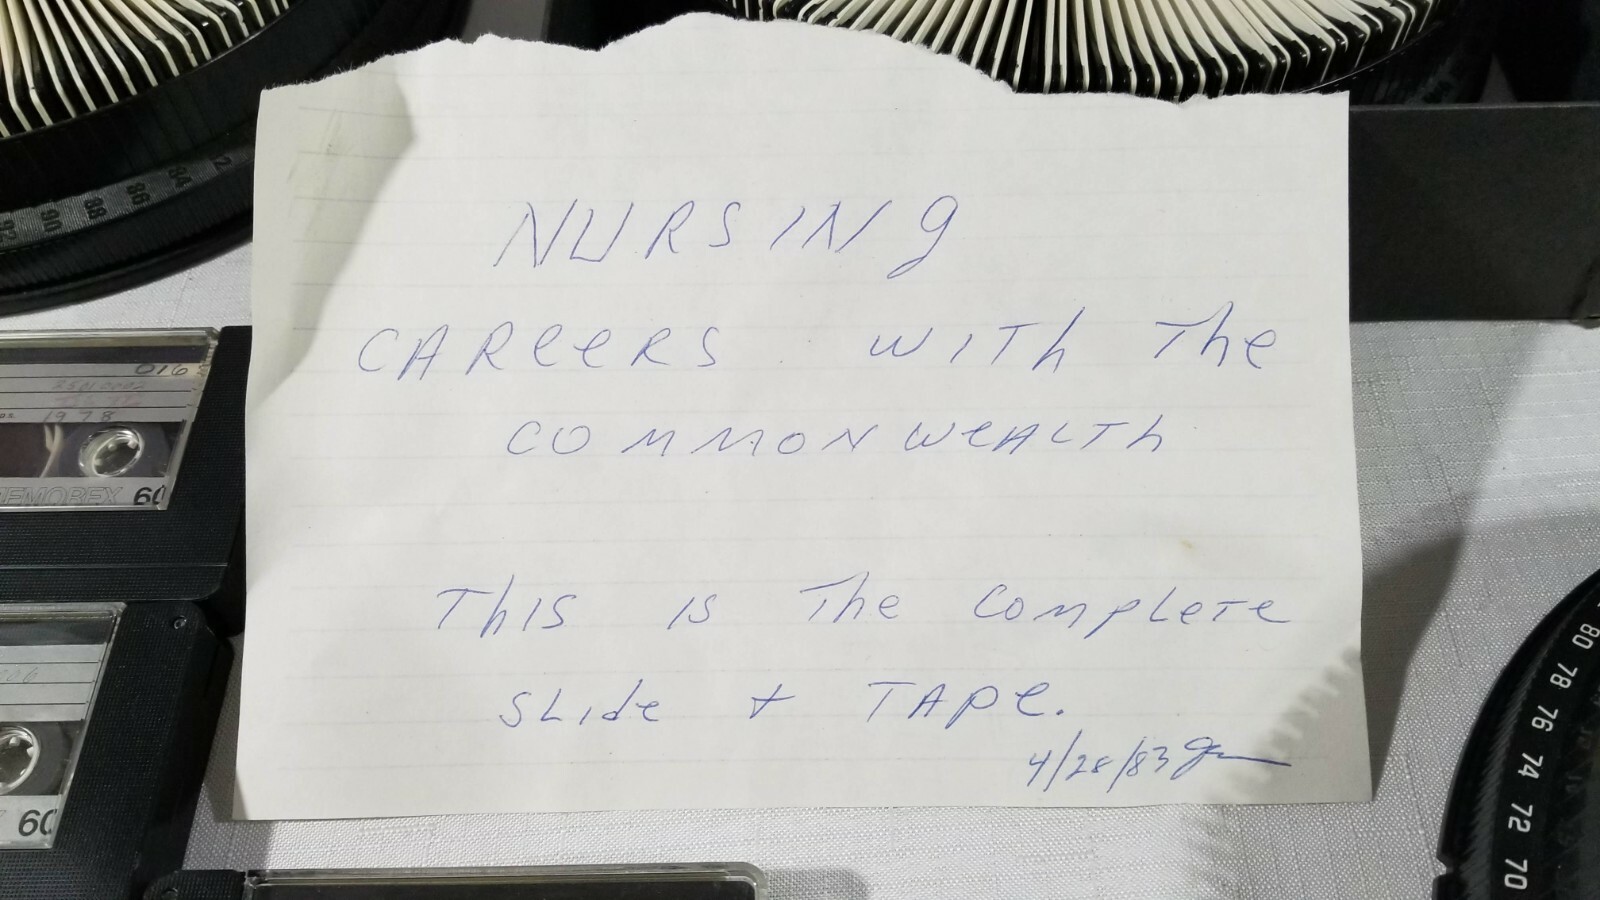 NURSINg
CAReeRS WITh The
COMMONWeALTh
ThIS IS The COMpLeTe
SLIde + TAPe.
4/28/83
84
86
88
90
92
016
1978
MEMOREX 60
60
80 78 76 74 72 70